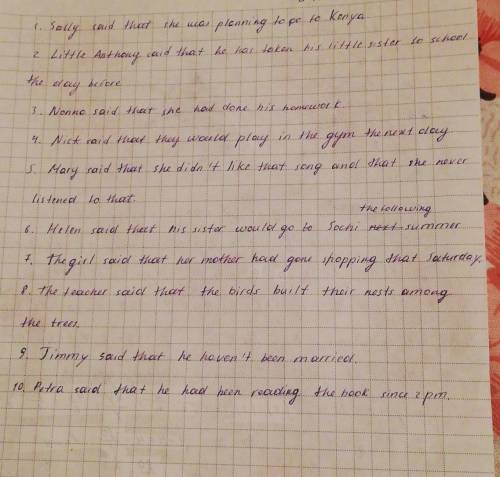 1. Sally said that she was planning to go to Kenya
2 Little Anthony said that he has taken his little sister to school
the day before
3. Nonna said that she had done his homework.
4. Nick said that they would play in the gym the next day
5. Mary said that she didn't like that song and that she never
listened to that.
the following
6. Helen said that his sister would go to Sochi next summer
7. The girl said that her mother had gone shopping that Saturday.
8. The teacher said that the birds built their nests among
the trees.
9. Jimmy said that he haven't been married.
10. Petra said that he had been reading the book since 2 pm.